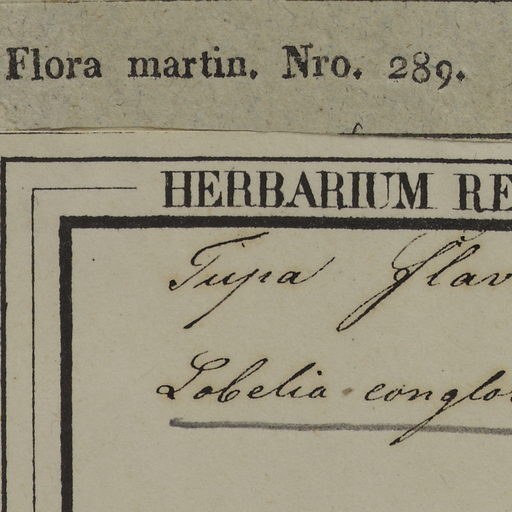 Flora martin. Nro. 289.
HERBARIUM RE
Tupa flav
Lobelia conglo